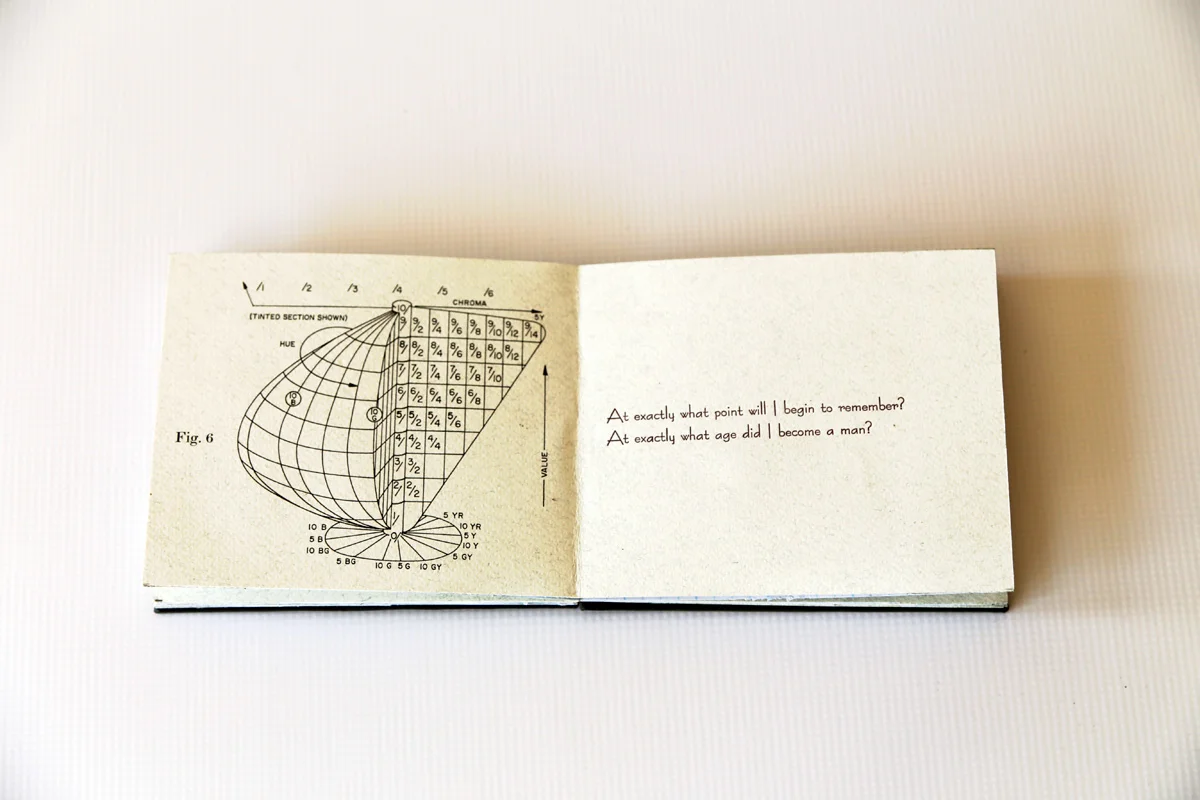 /1 /2 /3 /4 /5 /6
CHROMA
(TINTED SECTION SHOWN)
HUE
5Y
10/
9/ 9/2 9/4 9/6 9/8 9/10 9/12 9/14
8/ 8/2 8/4 8/6 8/8 8/10 8/12
7/ 7/2 7/4 7/6 7/8 7/10
6/ 6/2 6/4 6/6 6/8
5/ 5/2 5/4 5/6
4/ 4/2 4/4
3/ 3/2
2/ 2/2
1/
0/
10 B
VALUE
Fig. 6
10 B
5 B
10 BG
5 BG
10 G
5 G
10 GY
5 GY
10 Y
5 Y
10 YR
5 YR
At exactly what point will I begin to remember?
At exactly what age did I become a man?